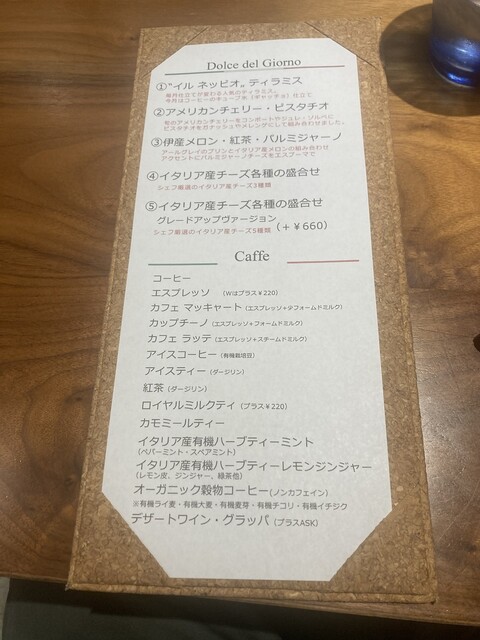 Dolce del Giorno
①"イル ネッビオ„ ティラミス
毎月仕立てが変わる人気のティラミス。
今月はコーヒーのキューブ氷(ギャッチョ)仕立て
②アメリカンチェリー・ピスタチオ
旬のアメリカンチェリーをコンポートやジュレ・ソルベに
ピスタチオをガナッシュやメレンゲにして組み合わせました。
③伊産メロン・紅茶・パルミジャーノ
アールグレイのプリンとイタリア産メロンの組み合わせ
アクセントにパルミジャーノチーズをエスプーマで
④イタリア産チーズ各種の盛合せ
シェフ厳選のイタリア産チーズ3種類
⑤イタリア産チーズ各種の盛合せ
グレードアップヴァージョン
シェフ厳選のイタリア産チーズ5種類 (+¥660)
Caffe
コーヒー
エスプレッソ (Wはプラス¥220)
カフェ マッキャート(エスプレッソ+タフォームドミルク)
カップチーノ(エスプレッソ+フォームドミルク)
カフェ ラッテ(エスプレッソ+スチームドミルク)
アイスコーヒー(有機栽培豆)
アイスティー(ダージリン)
紅茶(ダージリン)
ロイヤルミルクティ(プラス¥220)
カモミールティー
イタリア産有機ハーブティーミント
(ペパーミント・スペアミント)
イタリア産有機ハーブティーレモンジンジャー
(レモン皮、ジンジャー、緑茶他)
オーガニック穀物コーヒー(ノンカフェイン)
※有機ライ麦・有機大麦・有機麦芽・有機チコリ・有機イチジク
デザートワイン・グラッパ(プラスASK)